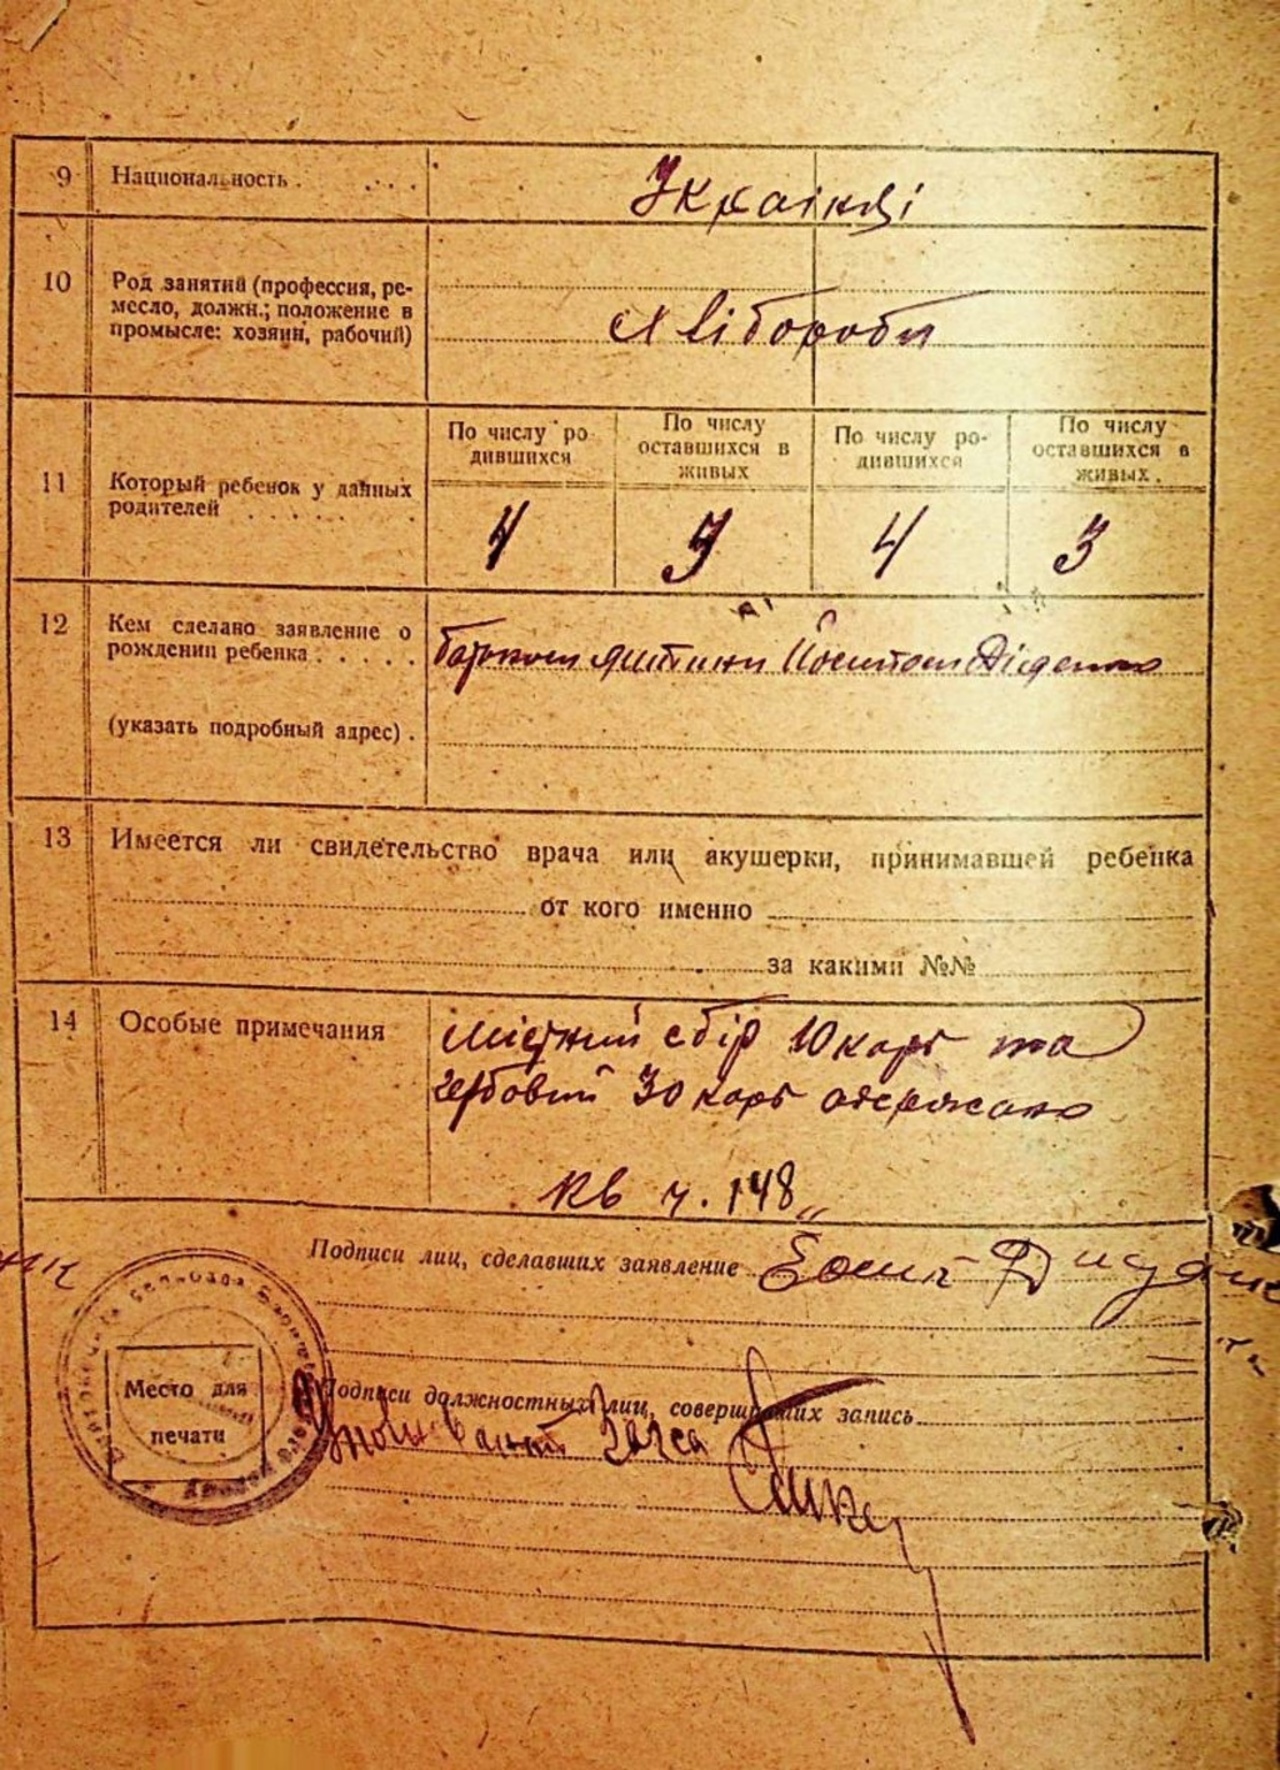 9 Национальность . . . . .
Українці
10 Род занятий (профессия, ре-
месло, должн.; положение в
промысле: хозяин, рабочий)
Хлібороби
11 Который ребенок у данных
родителей . . . . . .
По числу ро-
дившихся
По числу
оставшихся в
живых
По числу ро-
дившихся
По числу
оставшихся в
живых .
4 3 4 3
12 Кем сделано заявление о
рождении ребенка . . . . .
батьком дитини Йосипом Діденко
(указать подробный адрес) .
13 Имеется ли свидетельство врача или акушерки, принимавшей ребенка
от кого именно
за какими №№
14 Особые примечания
місткий сбір 10 карб та
гербовий 30 карб одержано
кв ч. 148
Подписи лиц, сделавших заявление
Место для
печати
Подписи должностных лиц, совершивших запись
Загса